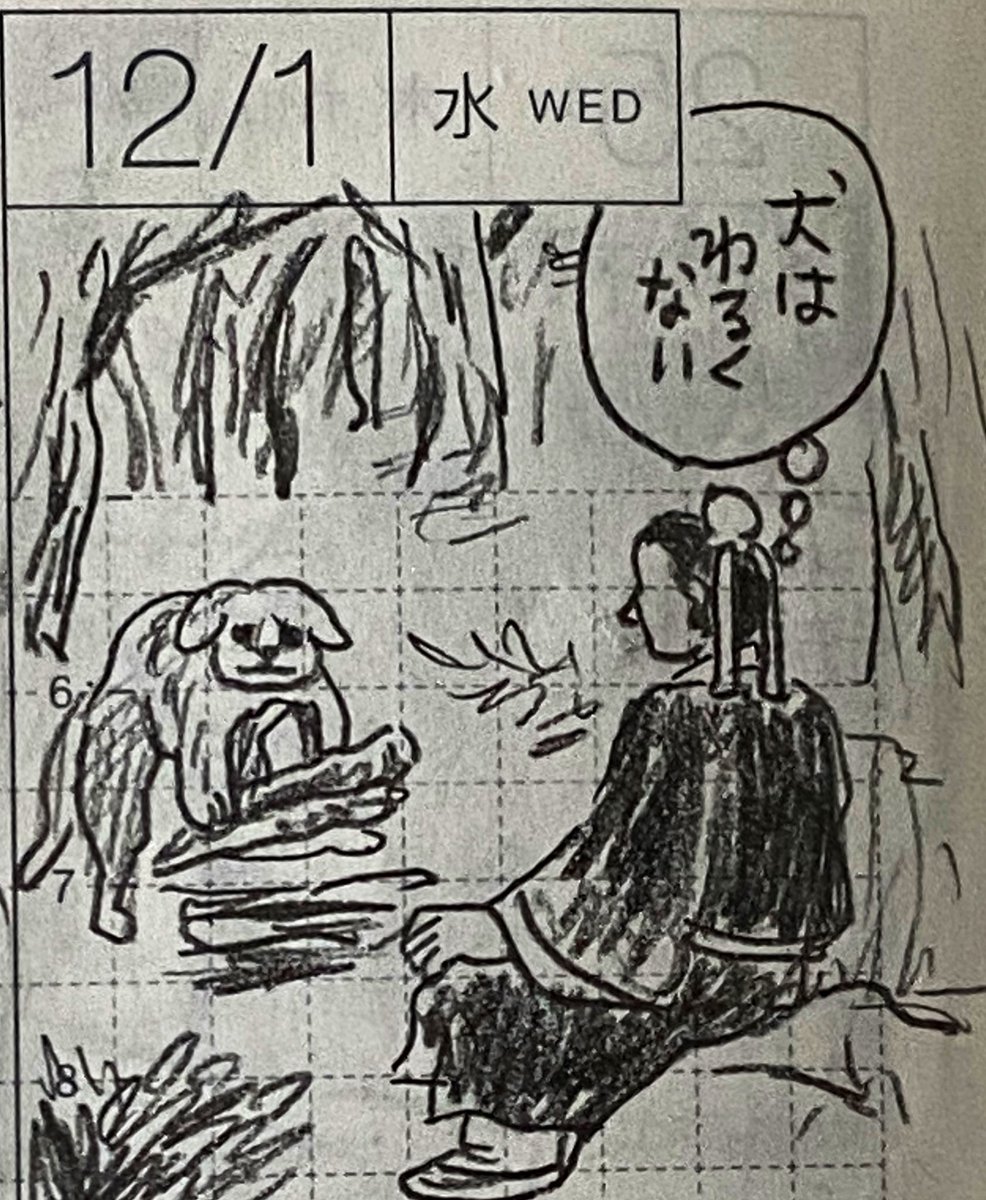 12/1
水 WED
犬は
わるく
ない
6
7
8